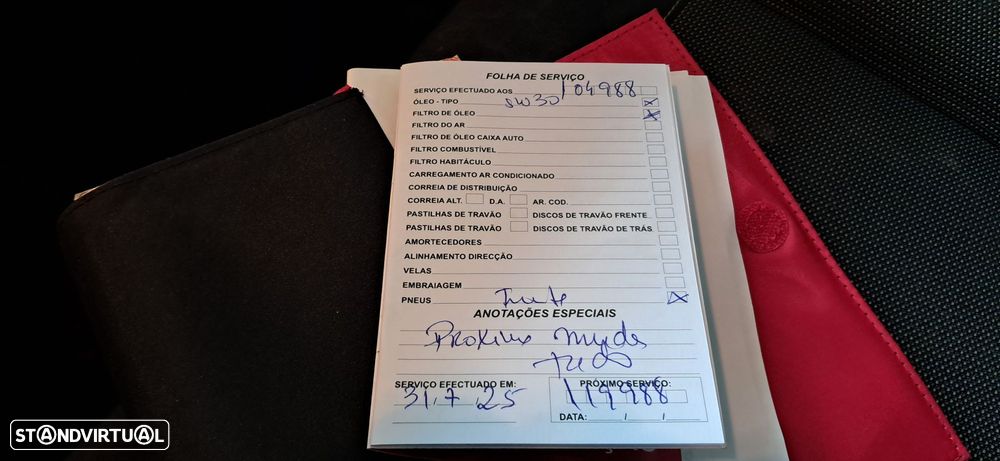 FOLHA DE SERVIÇO
SERVIÇO EFECTUADO AOS 104988
ÓLEO - TIPO 5W30 X
FILTRO DE ÓLEO X
FILTRO DO AR
FILTRO DE ÓLEO CAIXA AUTO
FILTRO COMBUSTÍVEL
FILTRO HABITÁCULO
CARREGAMENTO AR CONDICIONADO
CORREIA DE DISTRIBUIÇÃO
CORREIA ALT. D.A. AR. COD.
PASTILHAS DE TRAVÃO DISCOS DE TRAVÃO FRENTE
PASTILHAS DE TRAVÃO DISCOS DE TRAVÃO DE TRÁS
AMORTECEDORES
ALINHAMENTO DIRECÇÃO
VELAS
EMBRAIAGEM
PNEUS X
ANOTAÇÕES ESPECIAIS
SERVIÇO EFECTUADO EM: PRÓXIMO SERVIÇO:
31.7.25 119988
DATA: / /
STANDVIRTUAL